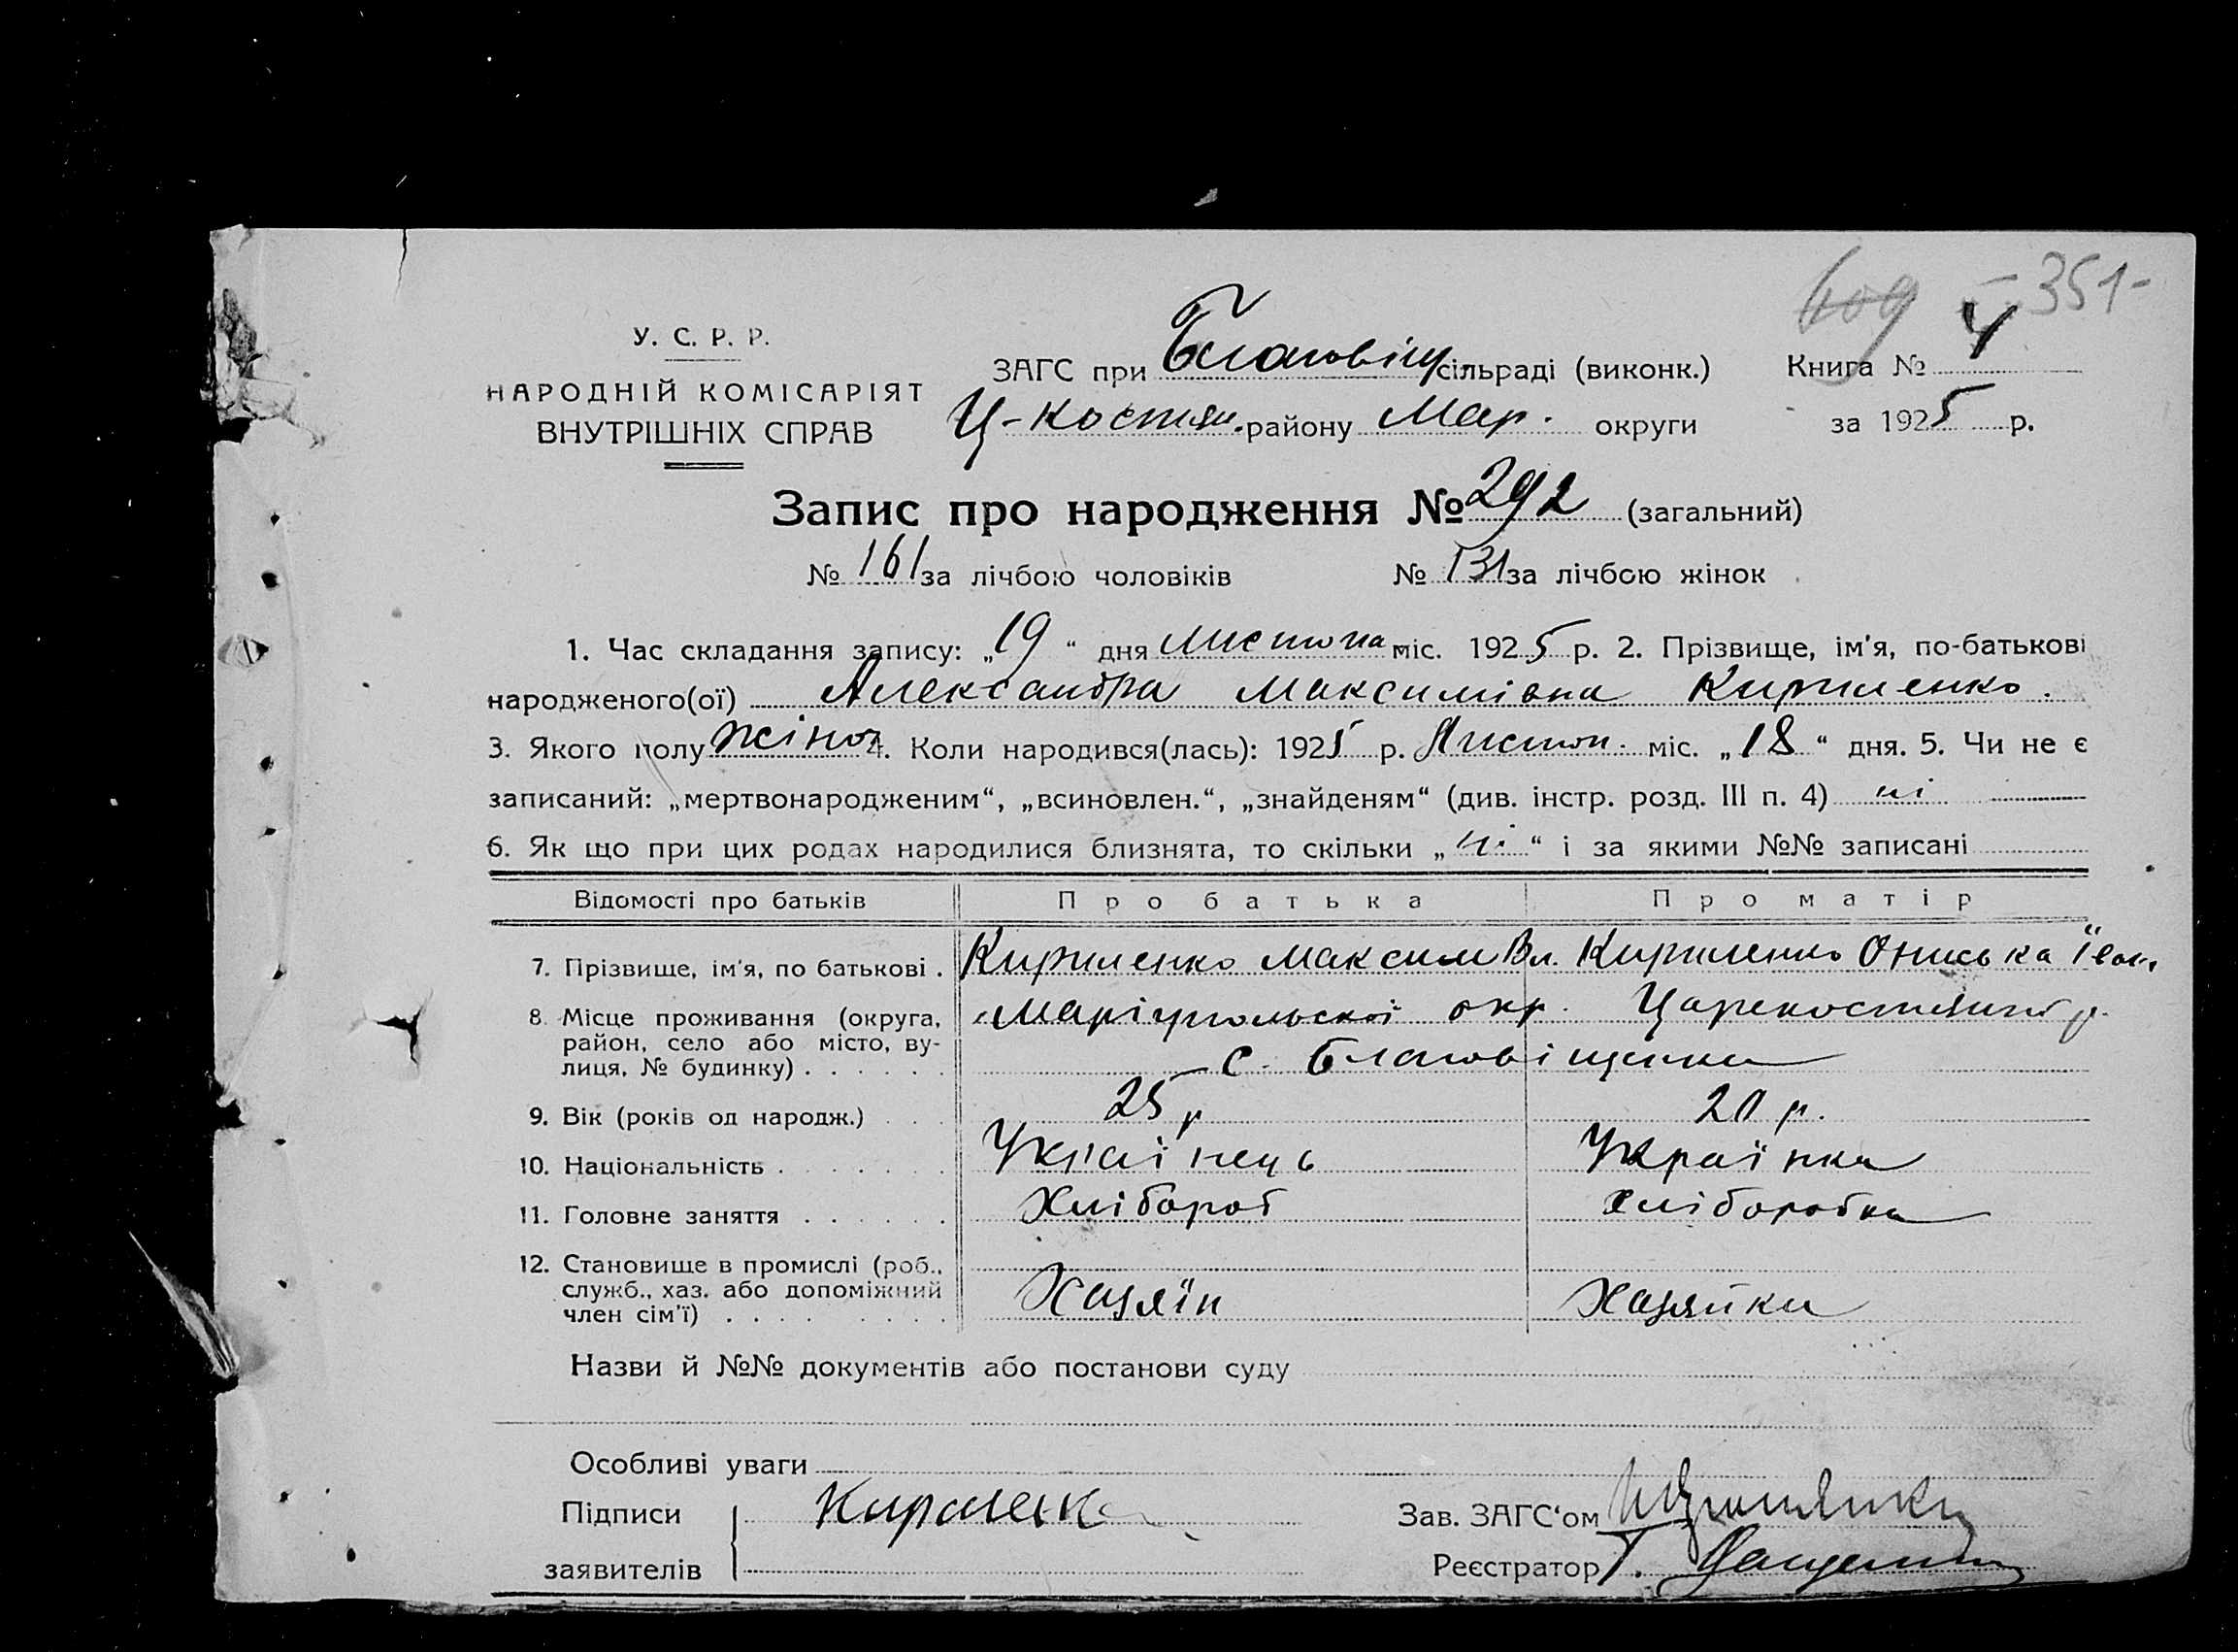 351-
У. С. Р. Р.
НАРОДНІЙ КОМІСАРІЯТ
ВНУТРІШНІХ СПРАВ
ЗАГС при Благовіщ сільраді (виконк.) Книга №
Ц-Костян. району Мар. округи за 1925 р.
Запис про народження № 292 (загальний)
№ 161 за лічбою чоловіків № 131 за лічбою жінок
1. Час складання запису: „19“ дня Листопа міс. 1925 р. 2. Прізвище, ім'я, по-батькові
народженого(ої) Александра Максимівна Кириленко.
3. Якого полу жіноч 4. Коли народився(лась): 1925 р. Листоп. міс. „18“ дня. 5. Чи не є
записаний: „мертвонародженим“, „всиновлен.“, „знайденям“ (див. інстр. розд. III п. 4) ні
6. Як що при цих родах народилися близнята, то скільки „ні“ і за якими №№ записані
Відомості про батьків Про батька Про матір
7. Прізвище, ім'я, по батькові . Кириленко Максим Вл. Кириленко Ониська Іван.
8. Місце проживання (округа, район, село або місто, вулиця, № будинку) . . . . . . Маріупольскої окр. Царекостянт р.
с. Благовіщенка
9. Вік (років од народж.) . . . 25 р 20 р.
10. Національність . . . . . . . Українець Українка
11. Головне заняття . . . . . . Хлібороб Хліборобка
12. Становище в промислі (роб., служб., хаз. або допоміжний член сім'ї) . . . . . . . . Хазяїн Хазяйка
Назви й №№ документів або постанови суду
Особливі уваги
Підписи заявителів Кириленко
Зав. ЗАГС‘ом
Реєстратор Г.